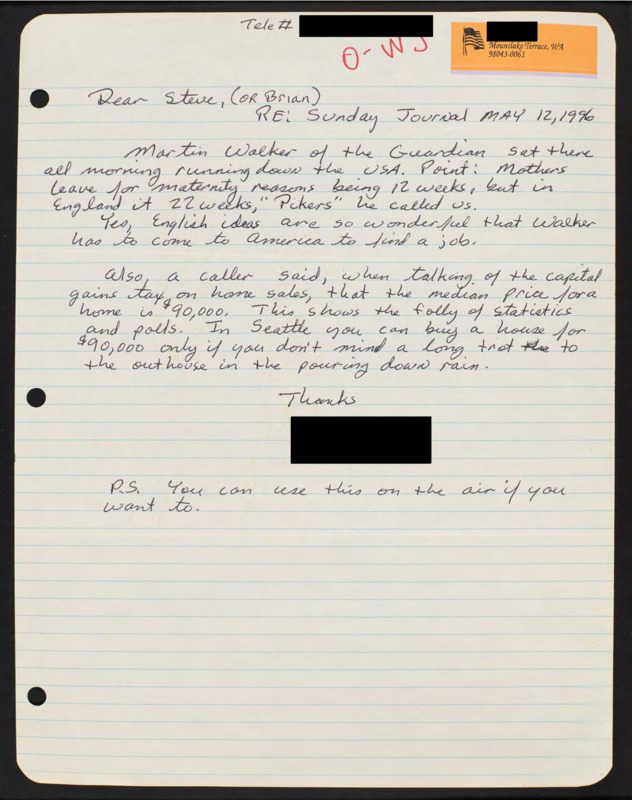 Tele #
O-WJ
Mountlake Terrace, WA
98043-0061
Dear Steve, (OR Brian)
RE: Sunday Journal MAY 12, 1996
Martin Walker of the Guardian sat there
all morning running down the USA. Point: Mothers
leave for maternity reasons being 12 weeks, but in
England it 22 weeks, "Pikers" he called us.
Yes, English ideas are so wonderful that Walker
has to come to America to find a job.
Also, a caller said, when talking of the capital
gains tax on home sales, that the median price for a
home is $90,000. This shows the folly of statistics
and polls. In Seattle you can buy a house for
$90,000 only if you don't mind a long trot to
the outhouse in the pouring down rain.
Thanks
P.S. You can use this on the air if you
want to.